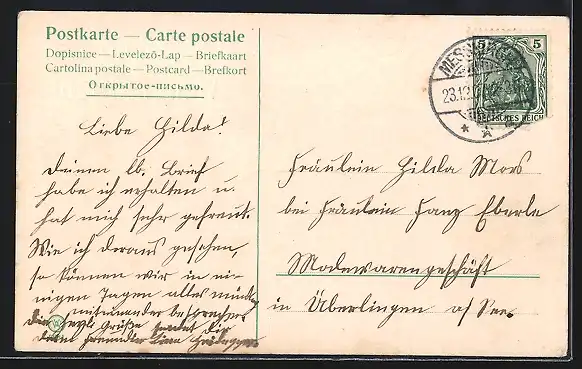 Postkarte — Carte postale
Dopisnice — Levelező-Lap — Briefkaart
Cartolina postale — Postcard — Brefkort
Открытое-письмо.
5 5
MESSKIRCH
23.12.
DEUTSCHES REICH
Liebe Hilda!
Deinen lb. Brief
habe ich erhalten u.
hat mich sehr gefreut.
Wie ich daraus gesehen,
so können wir in ei-
nigen Tagen alles mündl.
miteinander besprechen
Grüße sendet Dir
Deine Freundin Lina
Fräulein Hilda Mors
bei Fräulein Fanz Eberle
Modewarengeschäft
in Überlingen a/See.